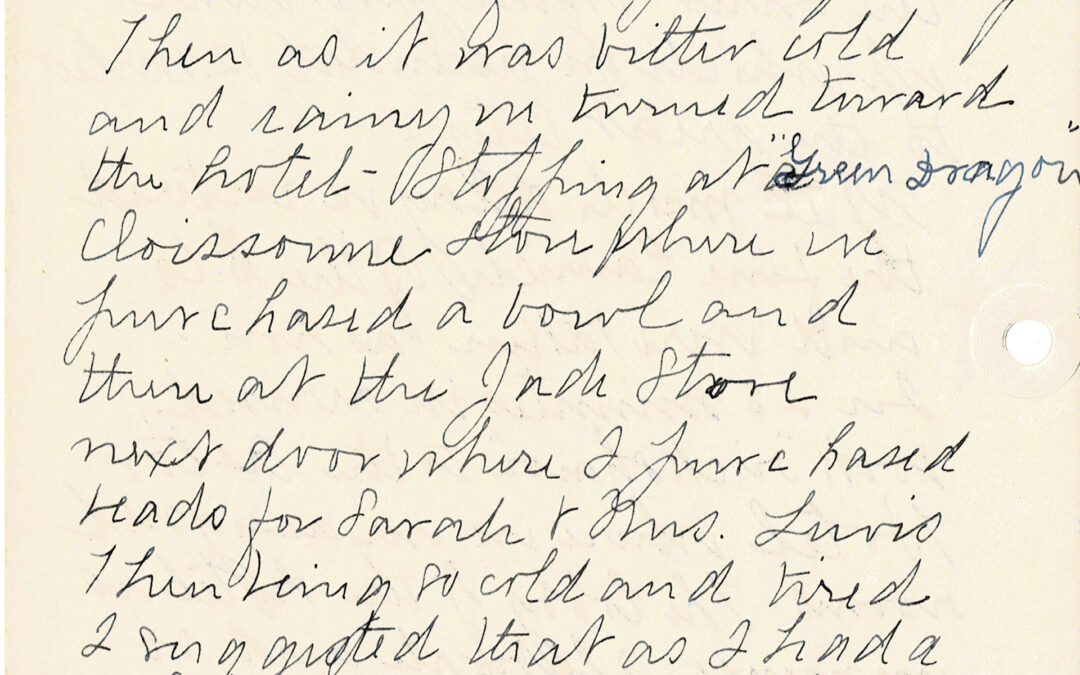 Then as it was bitter cold
and rainy we turned toward
the hotel - Stopping at "Green Dragon"
Cloissonne Store where we
purchased a bowl and
then at the Jade Store
next door where I purchased
beads for Sarah & Mrs. Lewis
Then being so cold and tired
I suggested that as I had a